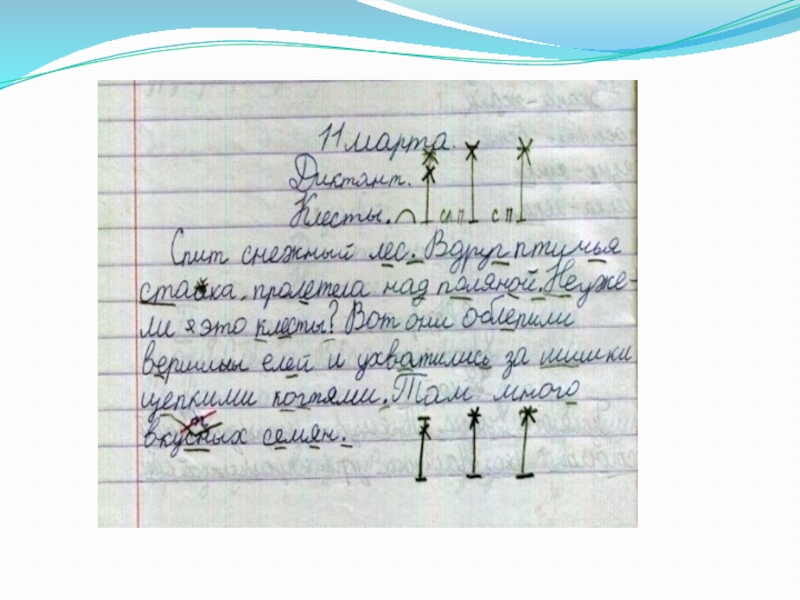 11 марта.
Диктант.
Клесты. сл.п с п
Спит снежный лес. Вдруг птичья
стайка пролетела над поляной. Неуже-
ли это клесты? Вот они облепили
вершины елей и ухватились за шишки
цепкими когтями. Там много
вкусных семян.